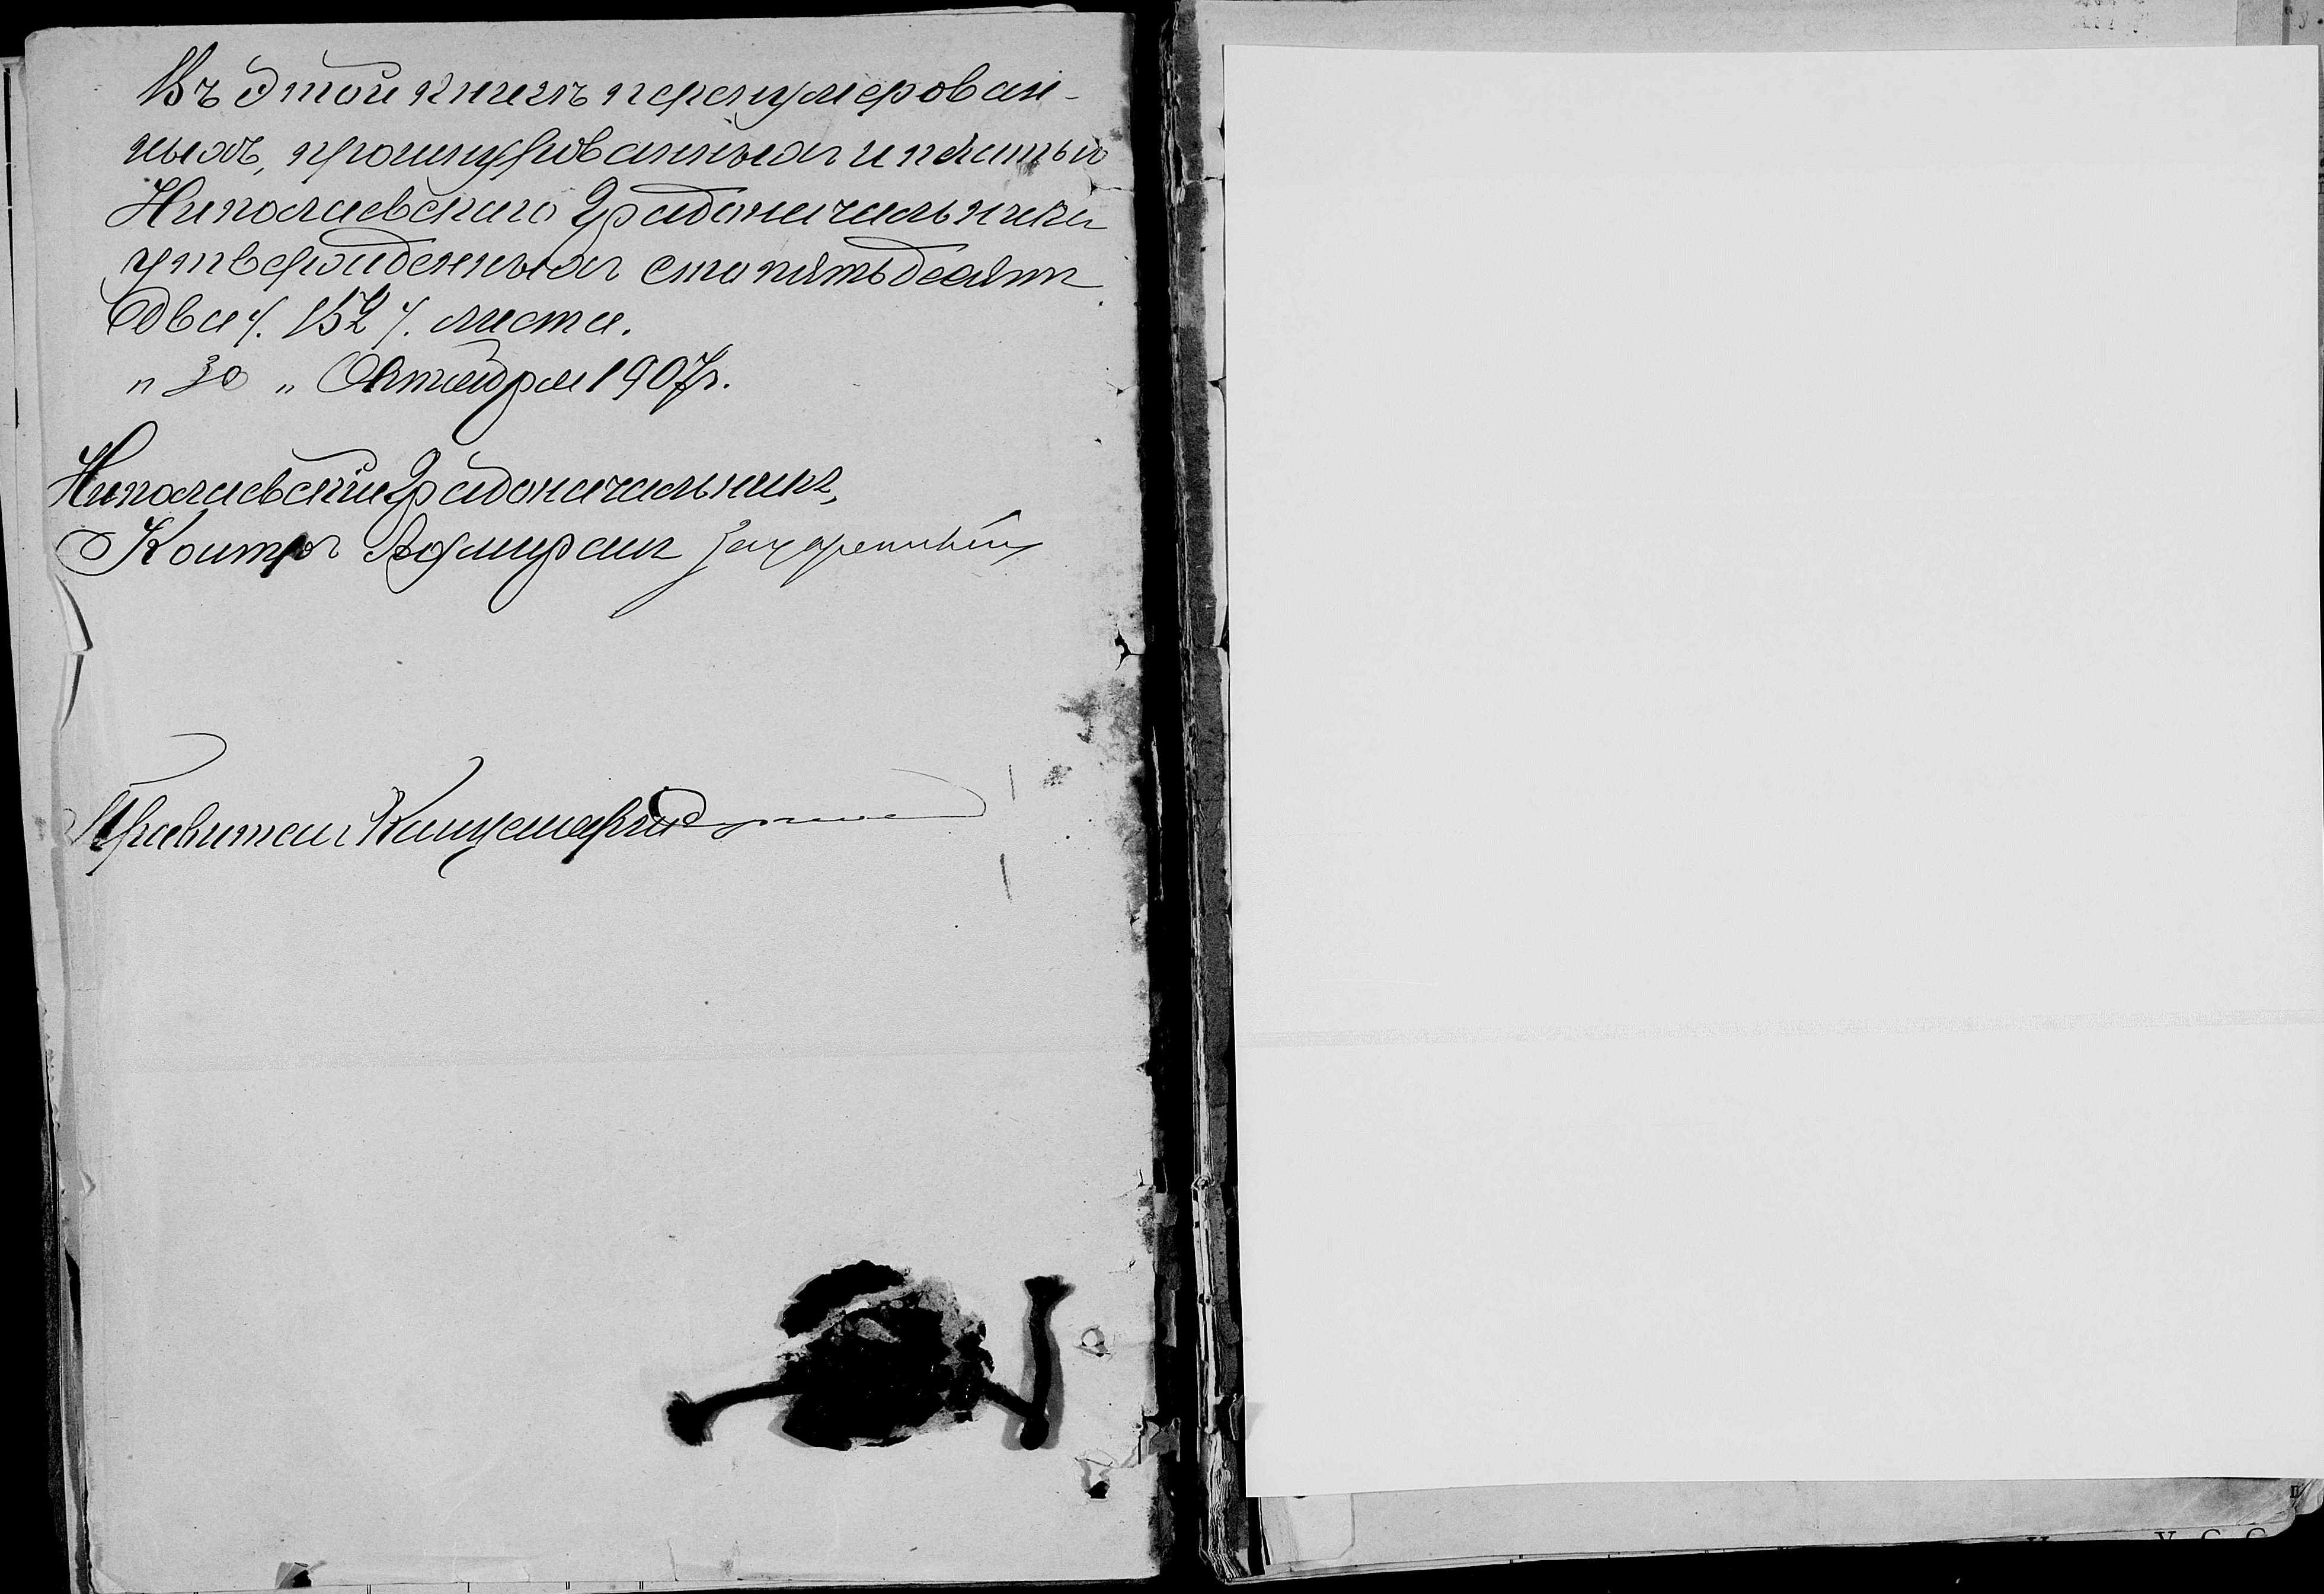 Въ этой книгѣ перенумерован-
ныхъ, прошнурованныхъ и печатью
Николаевскаго Градоначальника
утвержденныхъ сто пятьдесятъ
два /. 152 /. листа.
„ 30 „ Октября 1907 г.
Николаевскій Градоначальникъ,
Контръ Адмиралъ Зацаренный
Правитель Канцеляріи